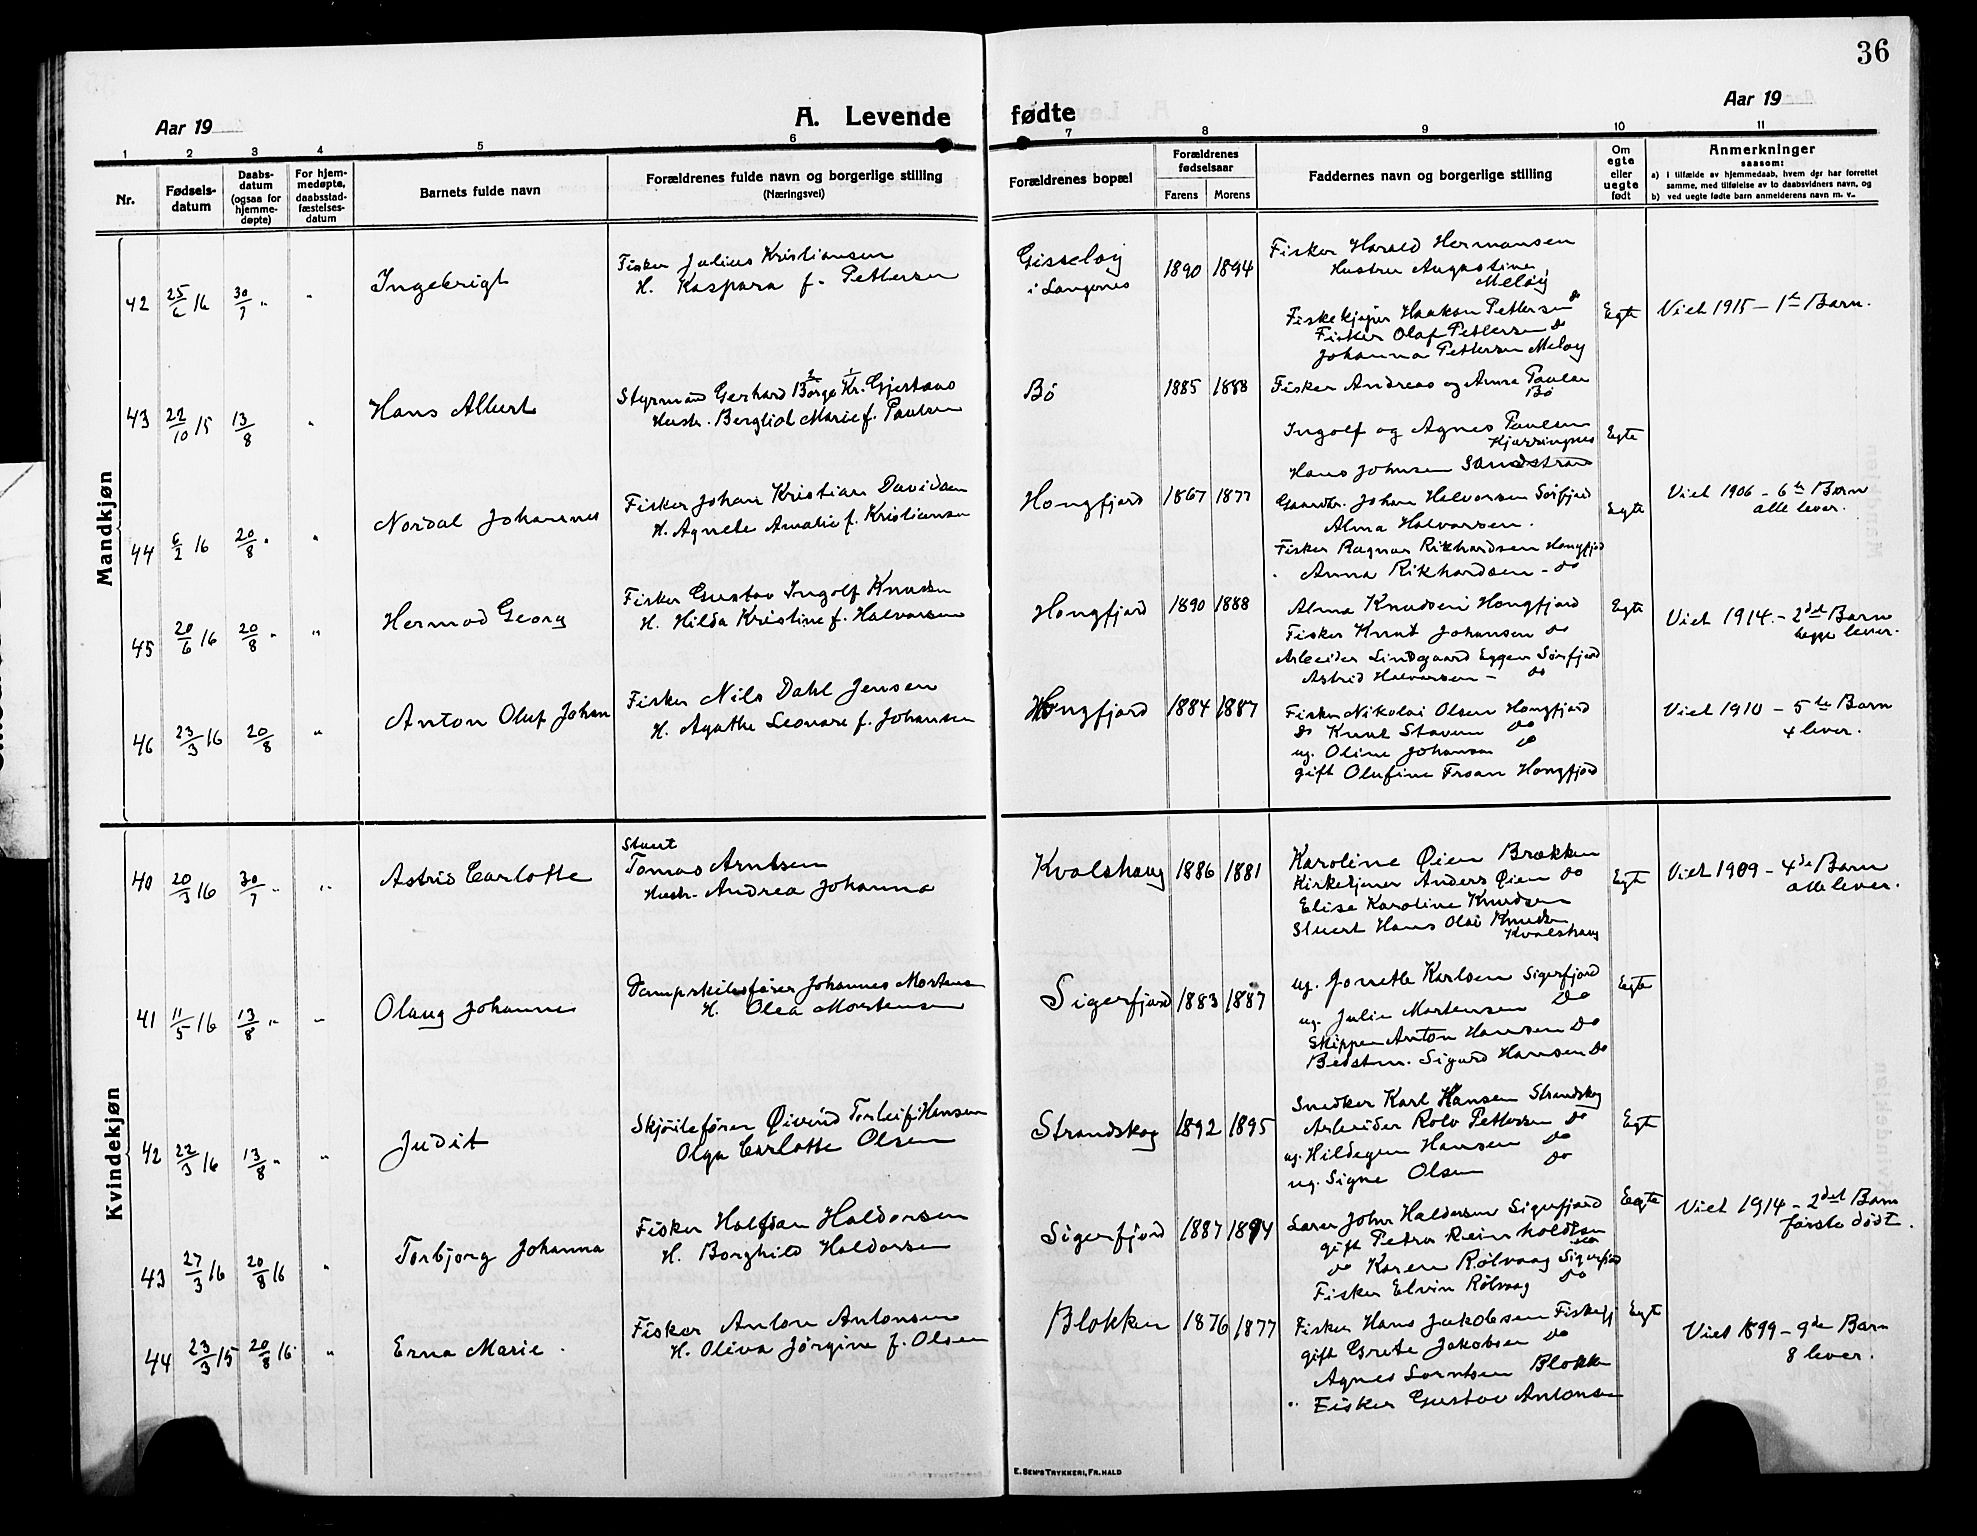 36
Aar 19
A. Levende fødte
Aar 19
1 2 3 4 5 6 7 8 9 10 11
Nr.
Fødsels-
datum
Daabs-
datum
(ogsaa for
hjemme-
døpte)
For hjem-
medøpte,
daabsstad-
fæstelses-
datum
Barnets fulde navn
Forældrenes fulde navn og borgerlige stilling
(Næringsvei)
Forældrenes bopæl
Forældrenes
fødselsaar
Farens Morens
Faddernes navn og borgerlige stilling
Om
egte
eller
uegte
født
Anmerkninger
saasom:
a) i tilfælde av hjemmedaab, hvem der har forrettet
samme, med tilføielse av to daabsvidners navn, og
b) ved uegte fødte barn anmelderens navn m. v.
Mandkjøn
42 25/6 16 30/7 " "
Ingebrigt
Fisker Julius Kristiansen
H. Kaspara f. Pettersen
Gisseløy
i Langenes
1890 1894
Fisker Harald Hermansen
Hustru Augustine,
Meløy
Fiskekjøper Haakon Pettersen do
Fisker Olaf Pettersen do
Johanna Pettersen Meløy
Egte
Viet 1915 - 1ste Barn.
43 22/10 15 13/8 "
Hans Albert
Styrmand Gerhard Borge Kr. Gjestavs
Hustr. Bergliot Marie f. Paulsen
Bø
1885 1888
Fisker Andreas og Anna Paulsen
Bø
Ingolf og Agnes Paulsen
Kjærringnes
Hans Johnsen Sandstrand
Egte
44 6/2 16 20/8 " "
Nordal Johannes
Fisker Johan Kristian Davidsen
H. Agnete Amalie f. Kristiansen
Hongfjord
1867 1877
Gaardbr. Johan Halvorsen Sørfjord
Alma Halvorsen.
Fisker Ragnar Rikhardsen Hongfjord
" Anna Rikhardsen - do
Egte
Viet 1906 - 6te Barn
alle lever.
45 20/6 16 20/8 " "
Hermod Georg
Fisker Gustav Ingolf Knudsen
H. Hilda Kristine f. Halvorsen
Hongfjord
1890 1888
Alma Knudsen Hongfjord
Fisker Knut Johansen do
Arbeider Lindgaard Eggen Sørfjord
Astrid Halvorsen - do
Egte
Viet 1914. - 2det Barn
begge lever.
46 23/3 16 20/8 "
Anton Oluf Johan
Fisker Nils Dahl Jensen
H. Agathe Leonare f. Johansen
Hongfjord
1884 1887
Fisker Nikolai Olsen Hongfjord
do Knut Stavem do
ug. Oline Johansen do
gift Olufine Hongfjord
Viet 1910 - 5te Barn
4 lever.
Kvindekjøn
40 20/3 16 30/7 " "
Astrid Carlotte
Stuert
Tomas Arntsen
Hustr. Andrea Johanna
Kvalshaug
1886 1881
Karoline Øien Brækken
Kirketjener Anders Øien do
Elise Karoline Knudsen
Stuert Hans Olai Knudsen
Kvalshaug
Egte
Viet 1909 - 4de Barn
alle lever.
41 11/5 16 13/8 " "
Olaug Johanne
Dampskibsfører Johannes Mortensen
H. Olea Mortensen
Sigerfjord
1883 1887
ug. Jonette Karlsen Sigerfjord
ug. Julie Mortensen do
Skipper Anton Hansen do
Bedstm. Sigurd Hansen do
Egte
42 22/3 16 13/8 " "
Judit
Skjøitefører Øivind Torleif Hansen
Olga Carlotte Olsen
Strandskog
1892 1895
Snedker Karl Hansen Strandskog
Arbeider Rolv Pettersen do
ug. Hildegun Hansen do
ug. Signe Olsen do
Egte
43 27/3 16 20/8 16 "
Torbjørg Johanna
Fisker Halfdan Haldorsen
H. Borghild Haldorsen
Sigerfjord
1887 1894
Lærer John Haldorsen Sigerfjord
gift Petra Reinholdtsen
do Karen Rølvaag Sigerfjord
Fisker Elvin Rølvaag do
Egte
Viet 1914 - 2det Barn
første dødt.
44 23/3 15 20/8 16. "
Erna Marie.
Fisker Anton Antonsen
H. Oliva Jørgine f. Olsen
Blokken
1876 1877
Fisker Hans Jakobsen Fiskefj
gift Grete Jakobsen do
Agnes Lorntsen Blokken
" Fisker Gustav Antonsen
Egte
Viet 1899 - 9de Barn
8 lever.
E. SEM'S TRYKKERI, FR. HALD